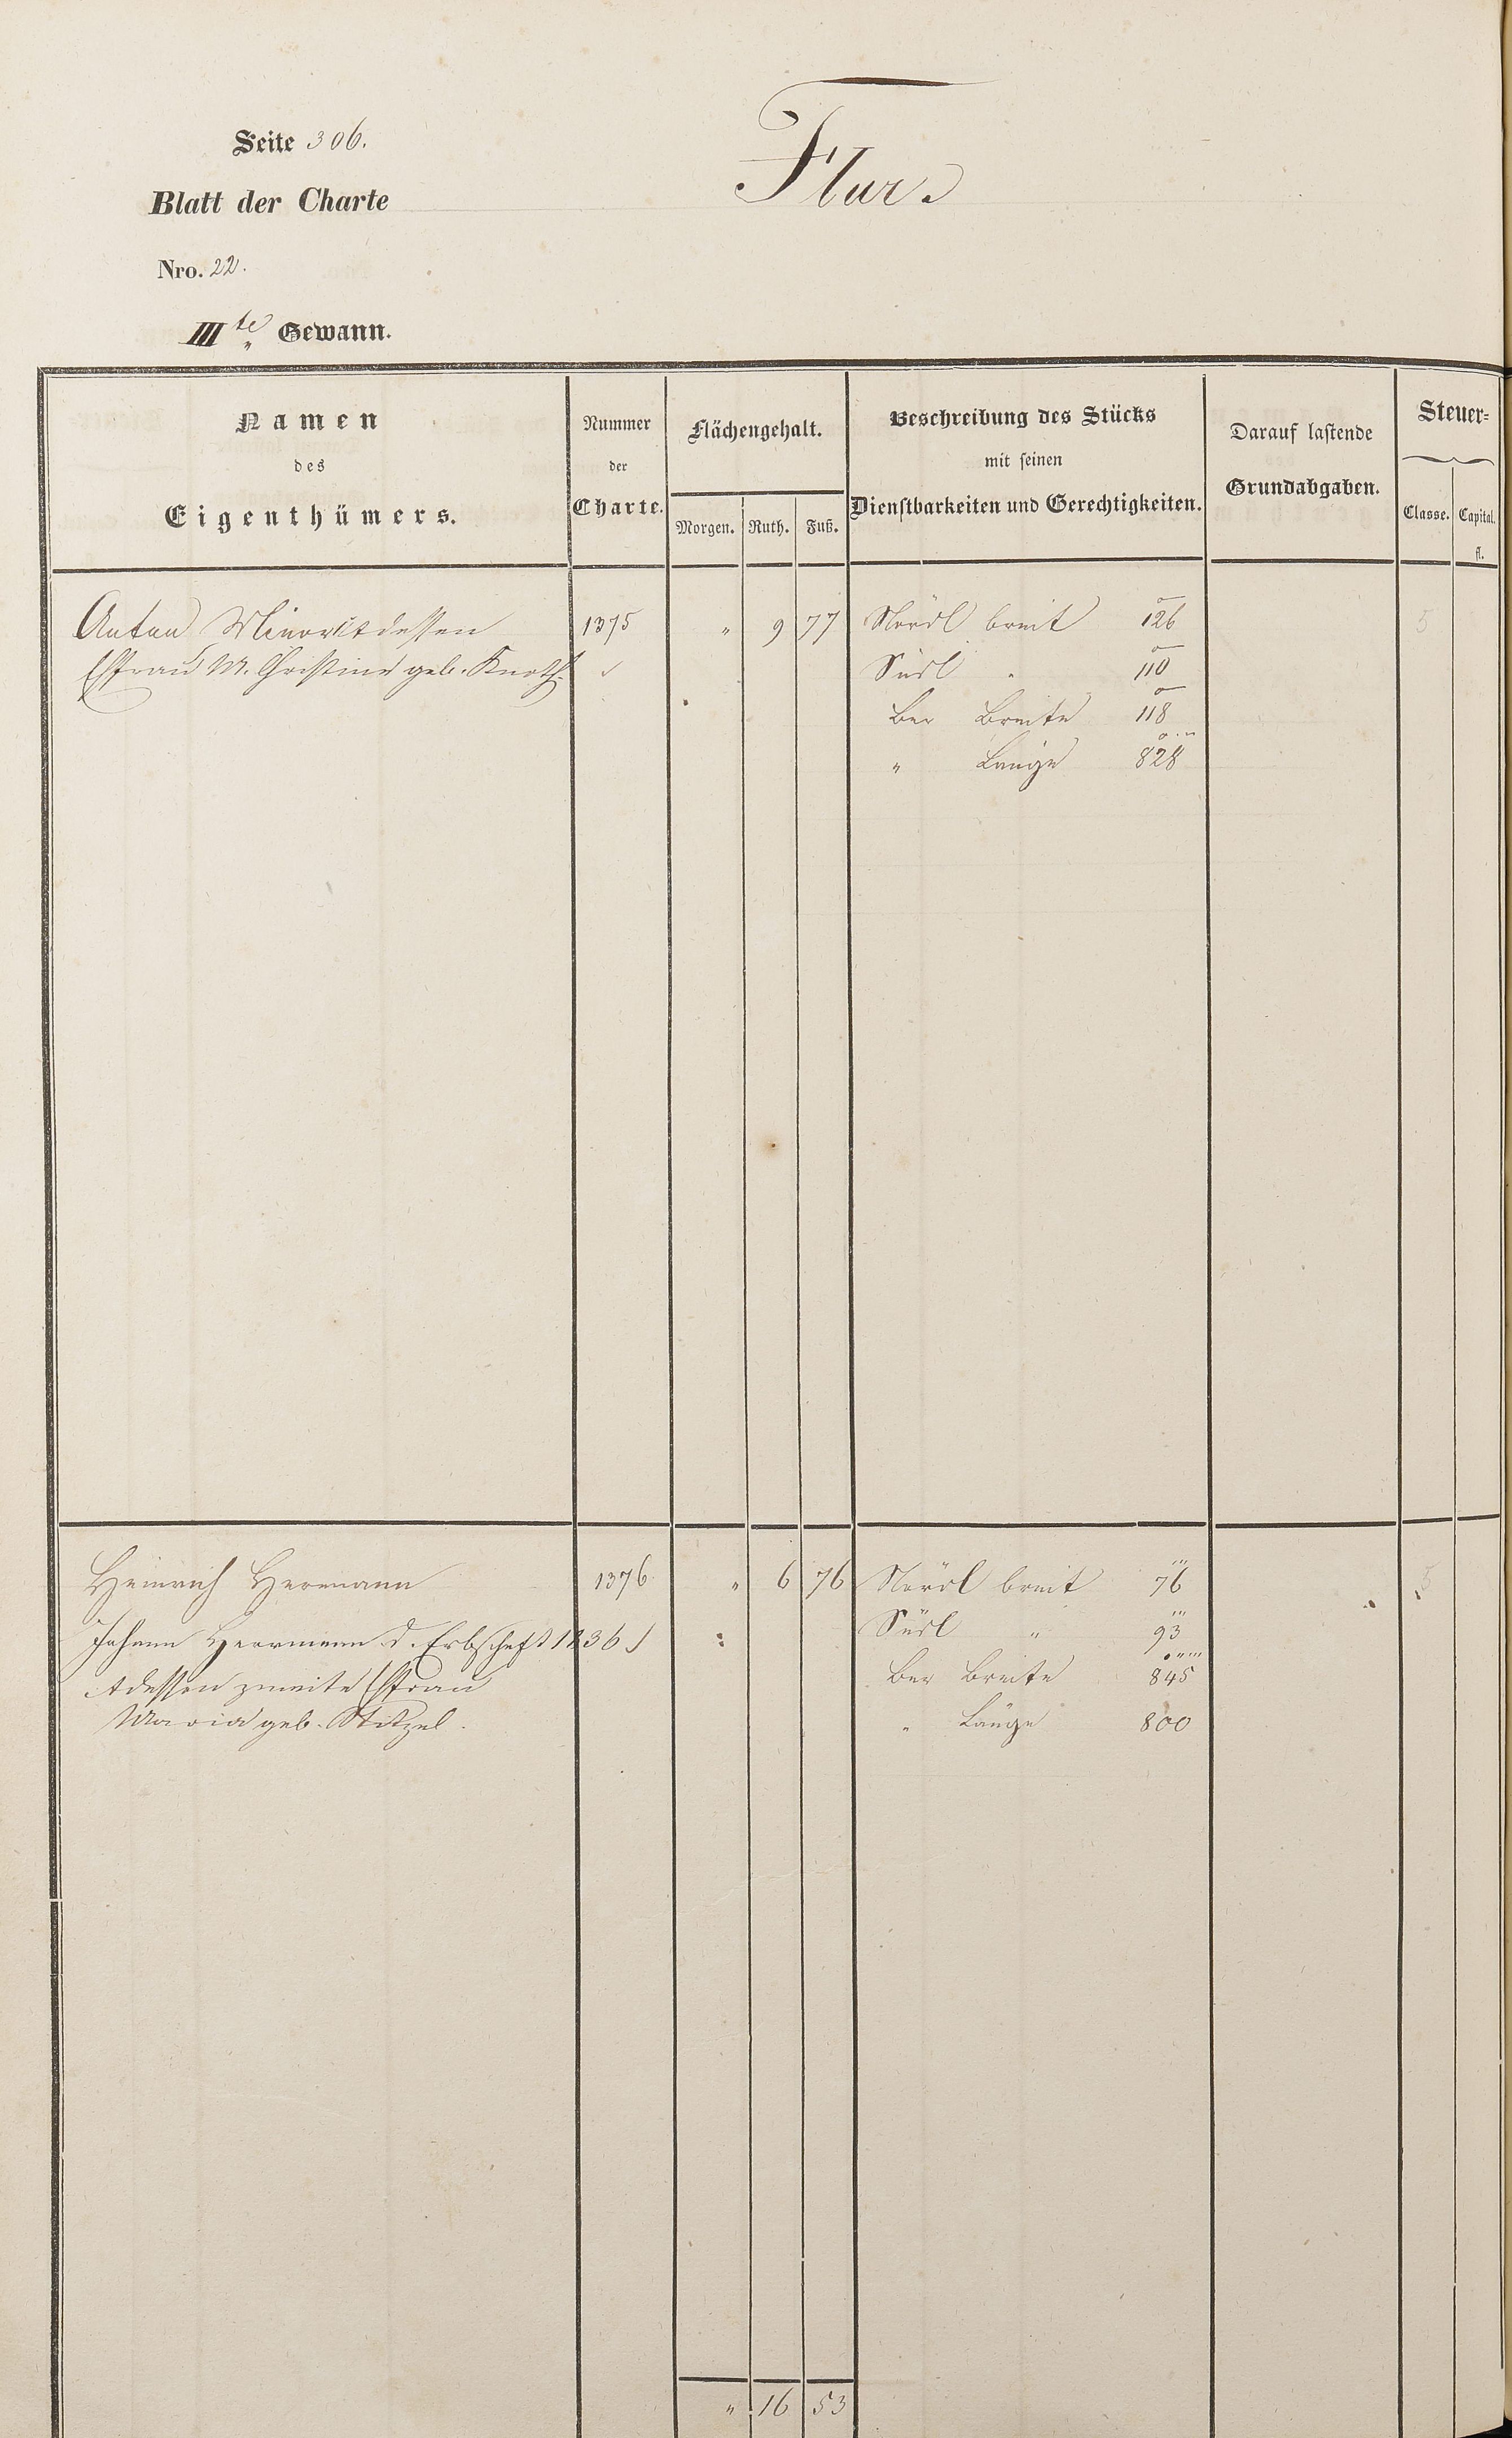 Seite 306.
Flur
Blatt der Charte
Nro. 22.
III te Gewann.
Namen
des
Eigenthümers.
Nummer
der
Charte.
Flächengehalt.
Morgen. Ruth. Fuß.
Beschreibung des Stücks
mit seinen
Dienstbarkeiten und Gerechtigkeiten.
Darauf lastende
Grundabgaben.
Steuer=
Classe. Capital.
fl.
Anton dessen 1375 " 9 77 Nördl breit 126 5
Ehfrau M. Christine geb. Knoth. Südl " 110
Ber Breite 118
" Länge 828
Heinrich Hermann 1376 " 6 76 Nördl breit 76 5
Johann Herrmann d. Erbschaft 1836 Südl " 93
dessen zweite Ehfrau Ber Breite 845
Maria geb. Stitzel. " Länge 800
" 16 53